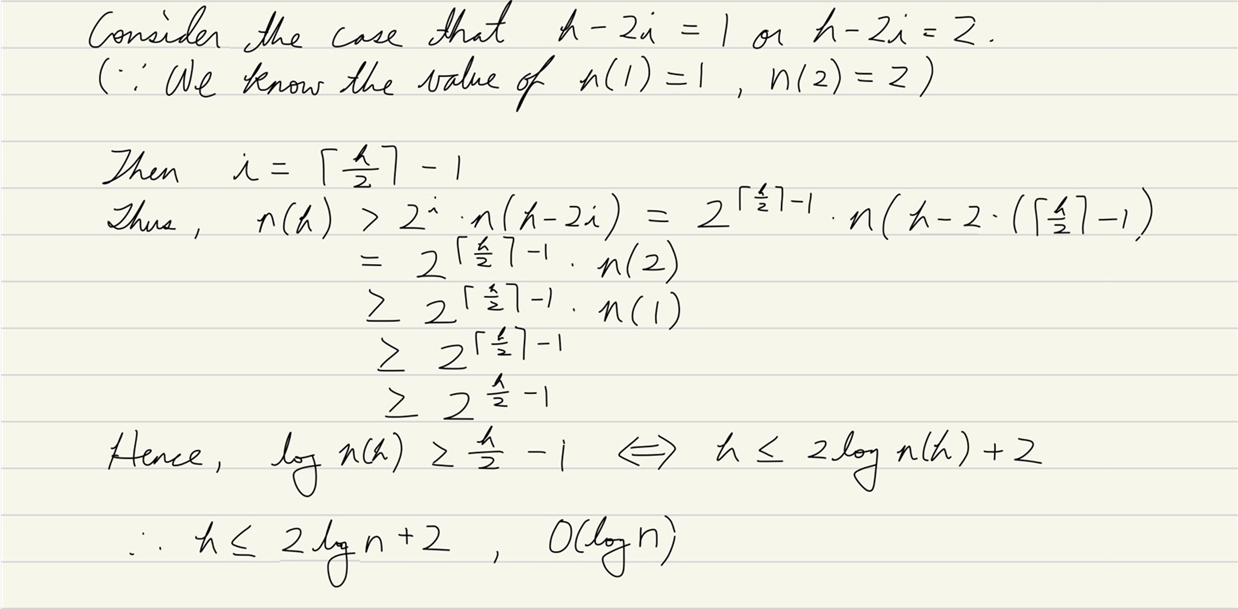 Consider the case that h-2i = 1 or h-2i = 2.
(∵ We know the value of n(1) = 1 , n(2) = 2)
Then i = ⌈h/2⌉ - 1
Thus, n(h) > 2^i · n(h-2i) = 2^(⌈h/2⌉-1) · n(h-2·(⌈h/2⌉-1)
= 2^(⌈h/2⌉-1) · n(2)
≥ 2^(⌈h/2⌉-1) · n(1)
≥ 2^(⌈h/2⌉-1)
≥ 2^(h/2 -1)
Hence, log n(h) ≥ h/2 - 1 ⇔ h ≤ 2 log n(h) + 2
∴ h ≤ 2 log n + 2 , O(log n)